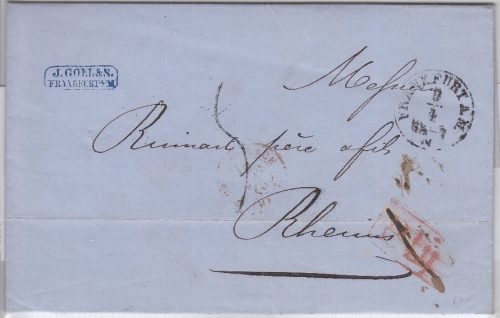 J. GOLL & S.
FRANKFURT a/M
FRANKFURT A. M.
Messieurs
Ruinart père & fils
Rheims